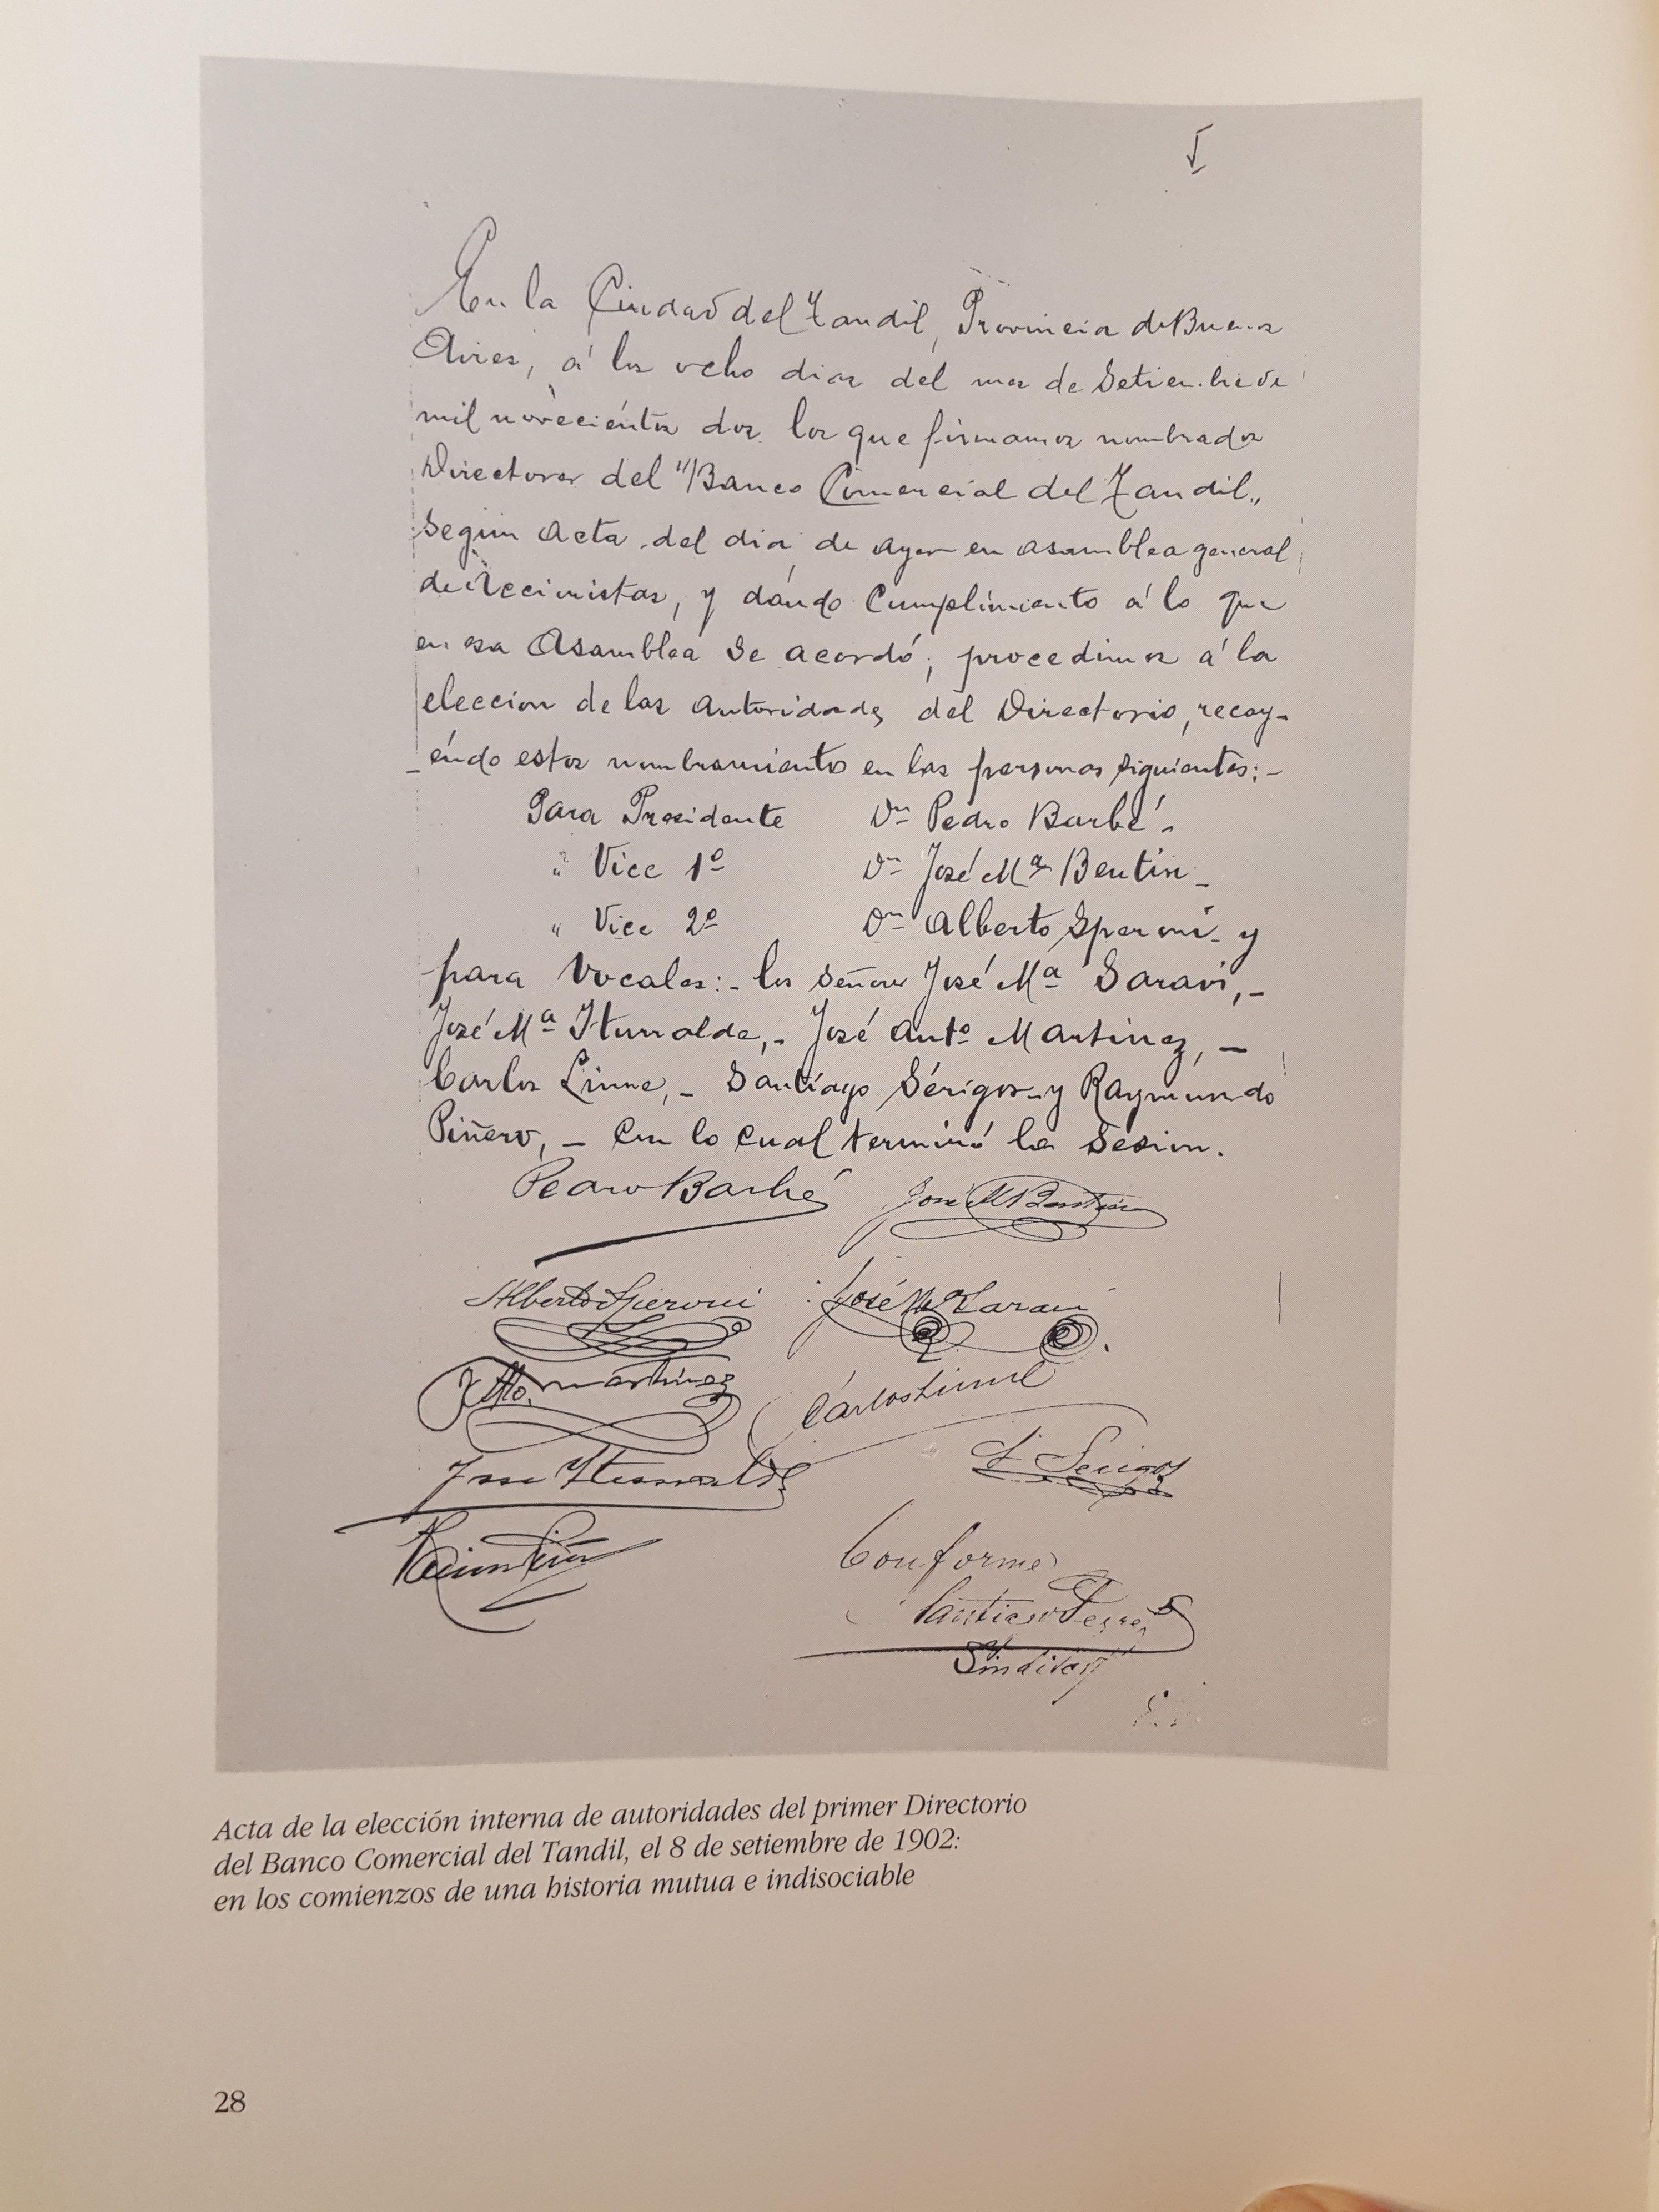 En la Ciudad del Tandil, Provincia de Buenos
Aires, á los ocho dias del mes de Setiembre de
mil novecientos dos los que firmamos nombrados
Directores del "Banco Comercial del Tandil„
Segun Acta del dia de ayer en asamblea general
de Accionistas, y dando Cumplimiento á lo que
en esa Asamblea se acordó, procedimos á la
eleccion de las autoridades del Directorio, recay-
endo estos nombramientos en las personas siguientes:-
Para Presidente Dn Pedro Barbé.
" Vice 1º Dn José Mª Bentin-
" Vice 2º Dn Alberto Speroni- y
para Vocales:- los señores José Mª Saravi,-
José Mª Iturralde,- José Antº Martinez,-
Carlos Linne,- Santiago Sérigos- y Raymundo
Piñero,- Con lo cual terminó la Sesion.
Pedro Barbé José M Bentin
Alberto Speroni José Ma Saravi
J. Ato. Martinez Carlos Linne
Jose Iturralde S. Serigos
Conforme
Santiago
Sindico
Acta de la elección interna de autoridades del primer Directorio
del Banco Comercial del Tandil, el 8 de setiembre de 1902:
en los comienzos de una historia mutua e indisociable
28